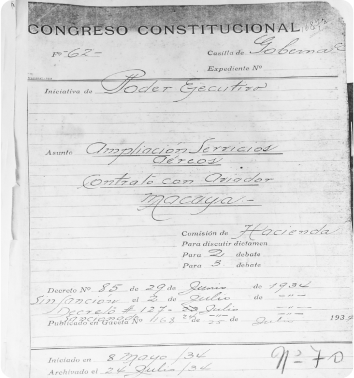 CONGRESO CONSTITUCIONAL
Nº -62-
Casilla de Goberna
Expediente Nº
Iniciativa de Poder Ejecutivo
Asunto Ampliacion Servicios
Aéreos.
Contrato con Aviador
Macaya-
Comisión de Hacienda
Para discutir dictamen
Para 2 debate
Para 3 debate
Decreto Nº 85 de 29 de Junio de 1934
Sin sancion el 2 de Julio de ---
Decreto # 127- Julio ---
Sancionado 24
Publicado en Gaceta Nº 163 de 25 de Julio 193
Iniciado en 8 Mayo /34
Archivado el 24 Julio /34
Nº 70